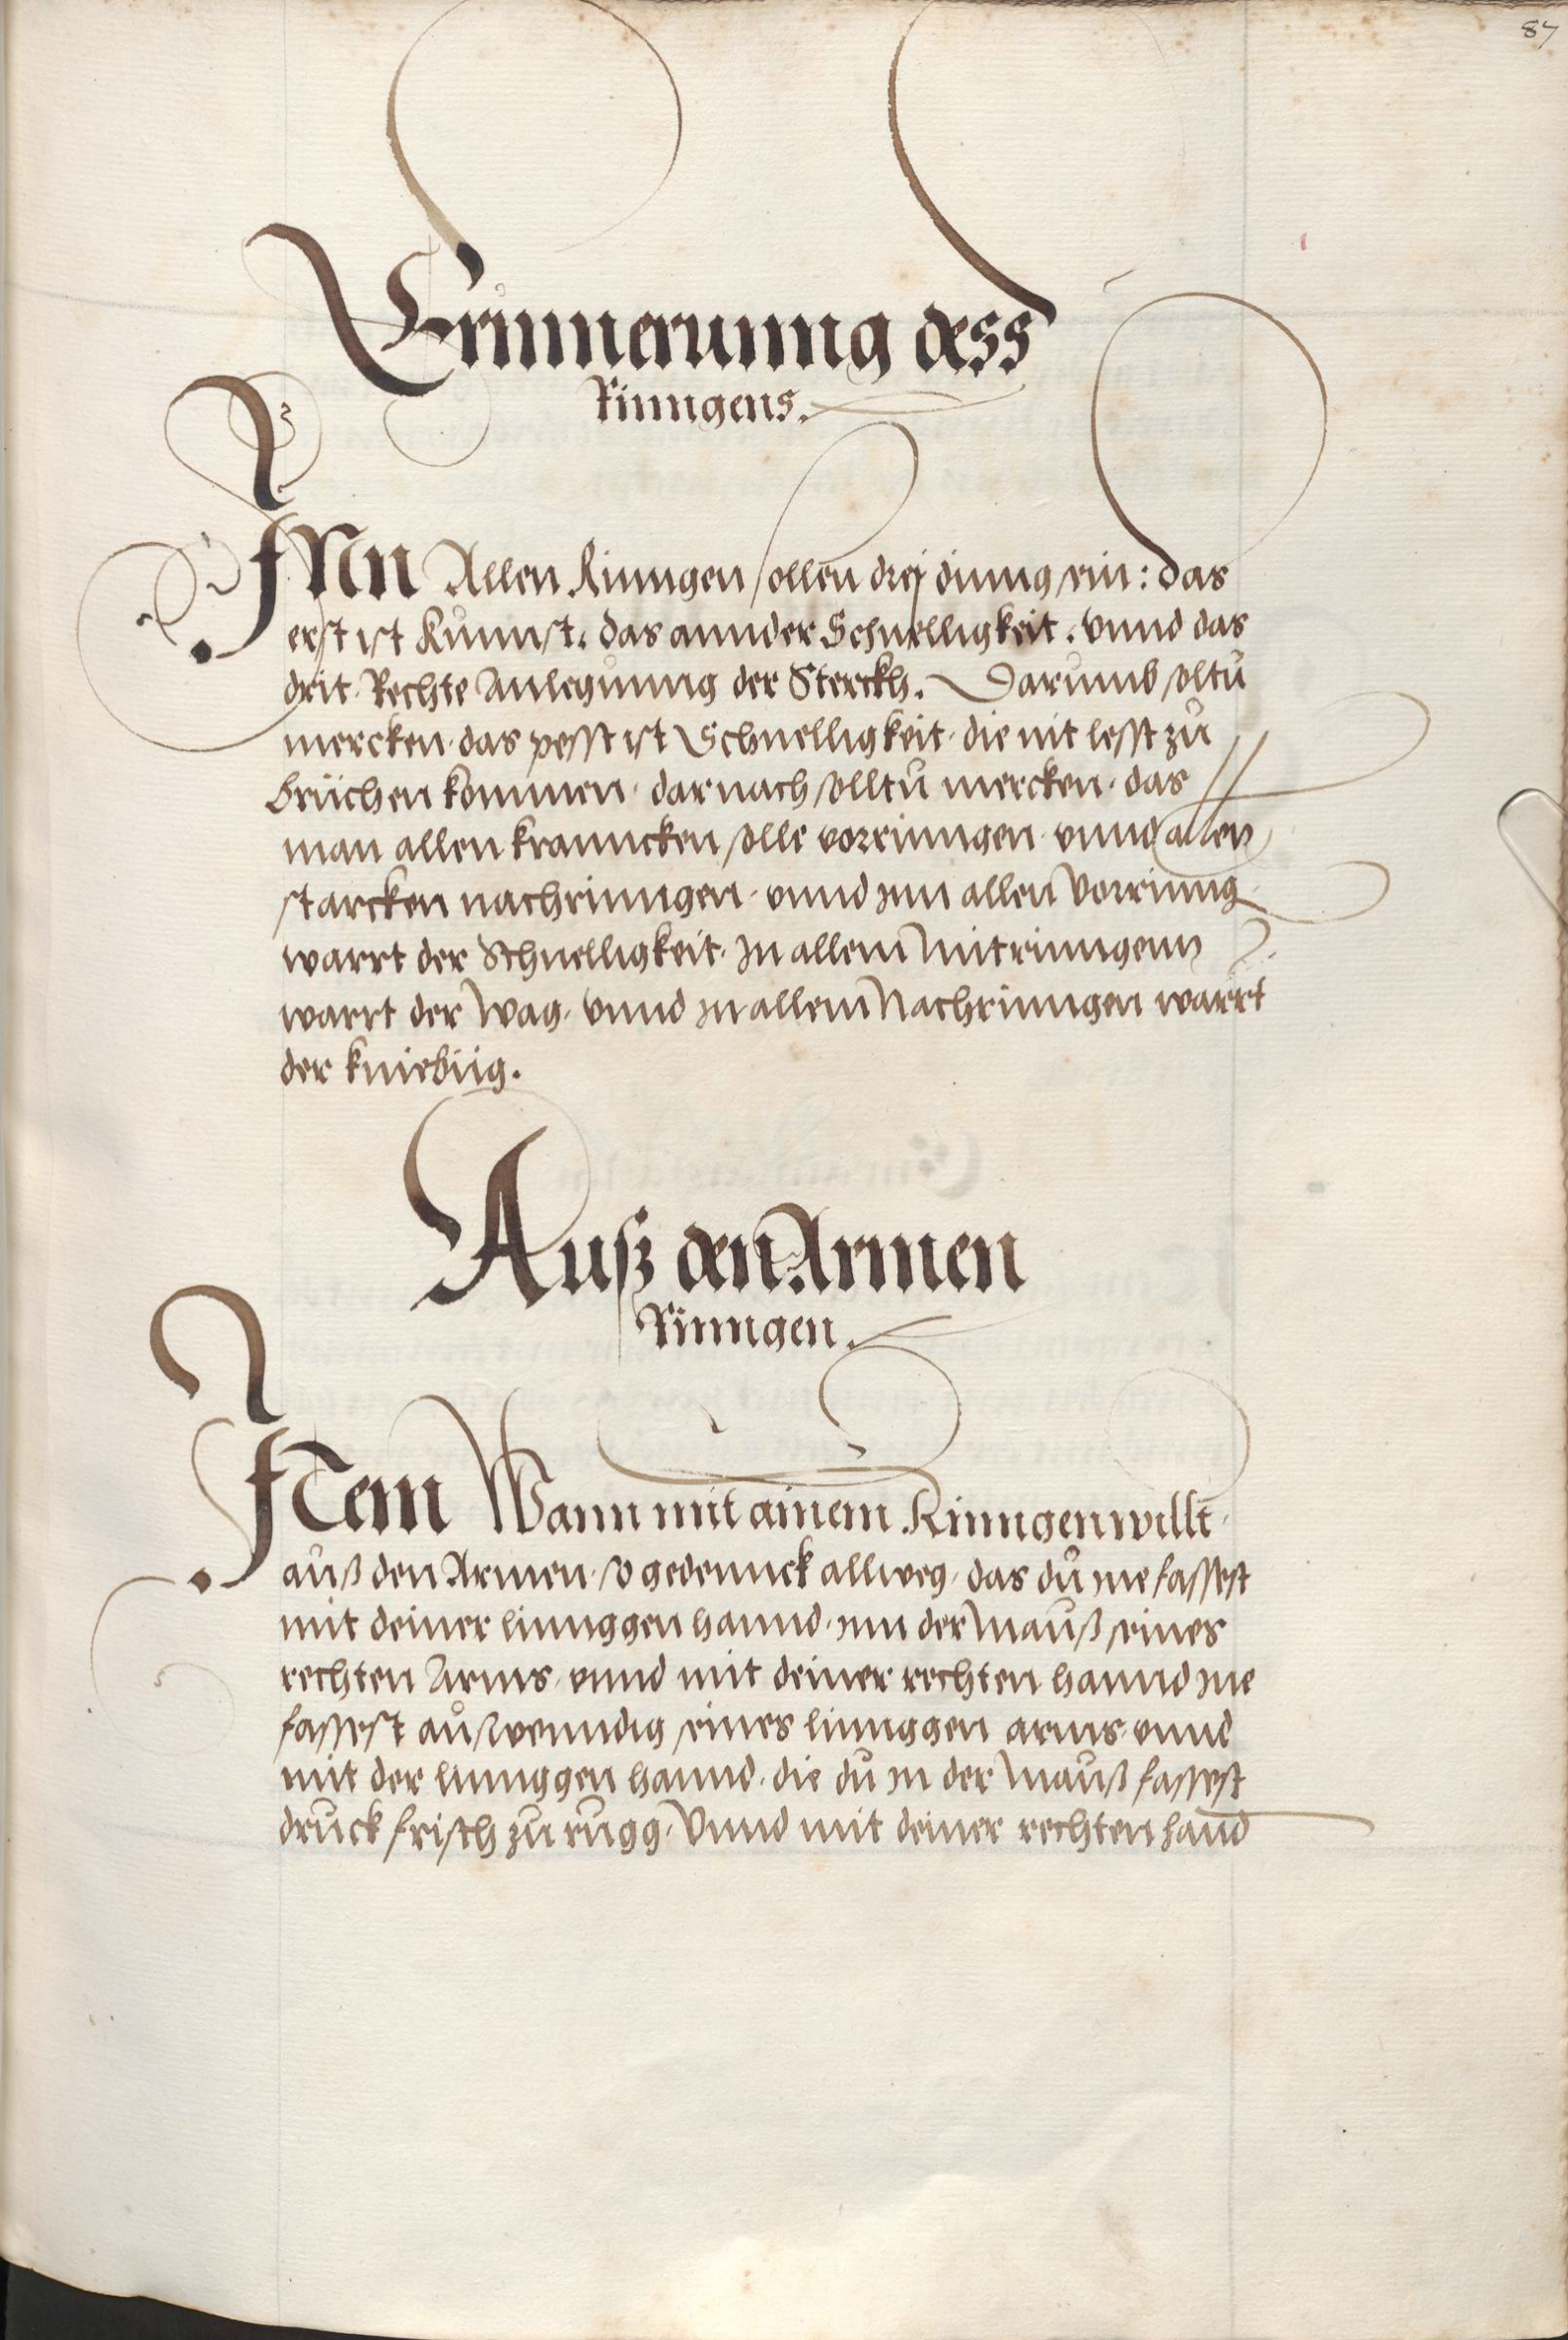 87
Erinnerunng dess
Rinngens.
INn Allen Rinngen sollen drej dinng sein: das
erst ist Kunnst. das annder Schnelligkeit. vnnd das
drit. Rechte Anlegunng der Sterckh. Darumb soltu
mercken. das pesst ist Schnelligkeit. die nit lesst zu
brüchen kommen. darnach solltu mercken. das
man allen kranncken solle vorrinngen. vnnd allen
starcken nachrinngen. vnnd inn allen Vorrinng
warrt der Schnelligkeit. In allem Mitrinngenn
warrt der Wag. Vnnd in allem Nachrinngen warrt
der kniebüg.
Auß den Armen
Rinngen.
ITem Wann mit ainem Rinngen willt.
auß den Armen. so gedennck allweg. das du ine fassest
mit deiner linnggen hannd. inn der Mauß seines
rechten Arms. vnnd mit deiner rechten hannd ine
fassest außwenndig seines linnggen arms. vnnd
mit der linnggen hannd. die du in der Mauß fassest
druck frisch zu rugg. Vnnd mit deiner rechten hand